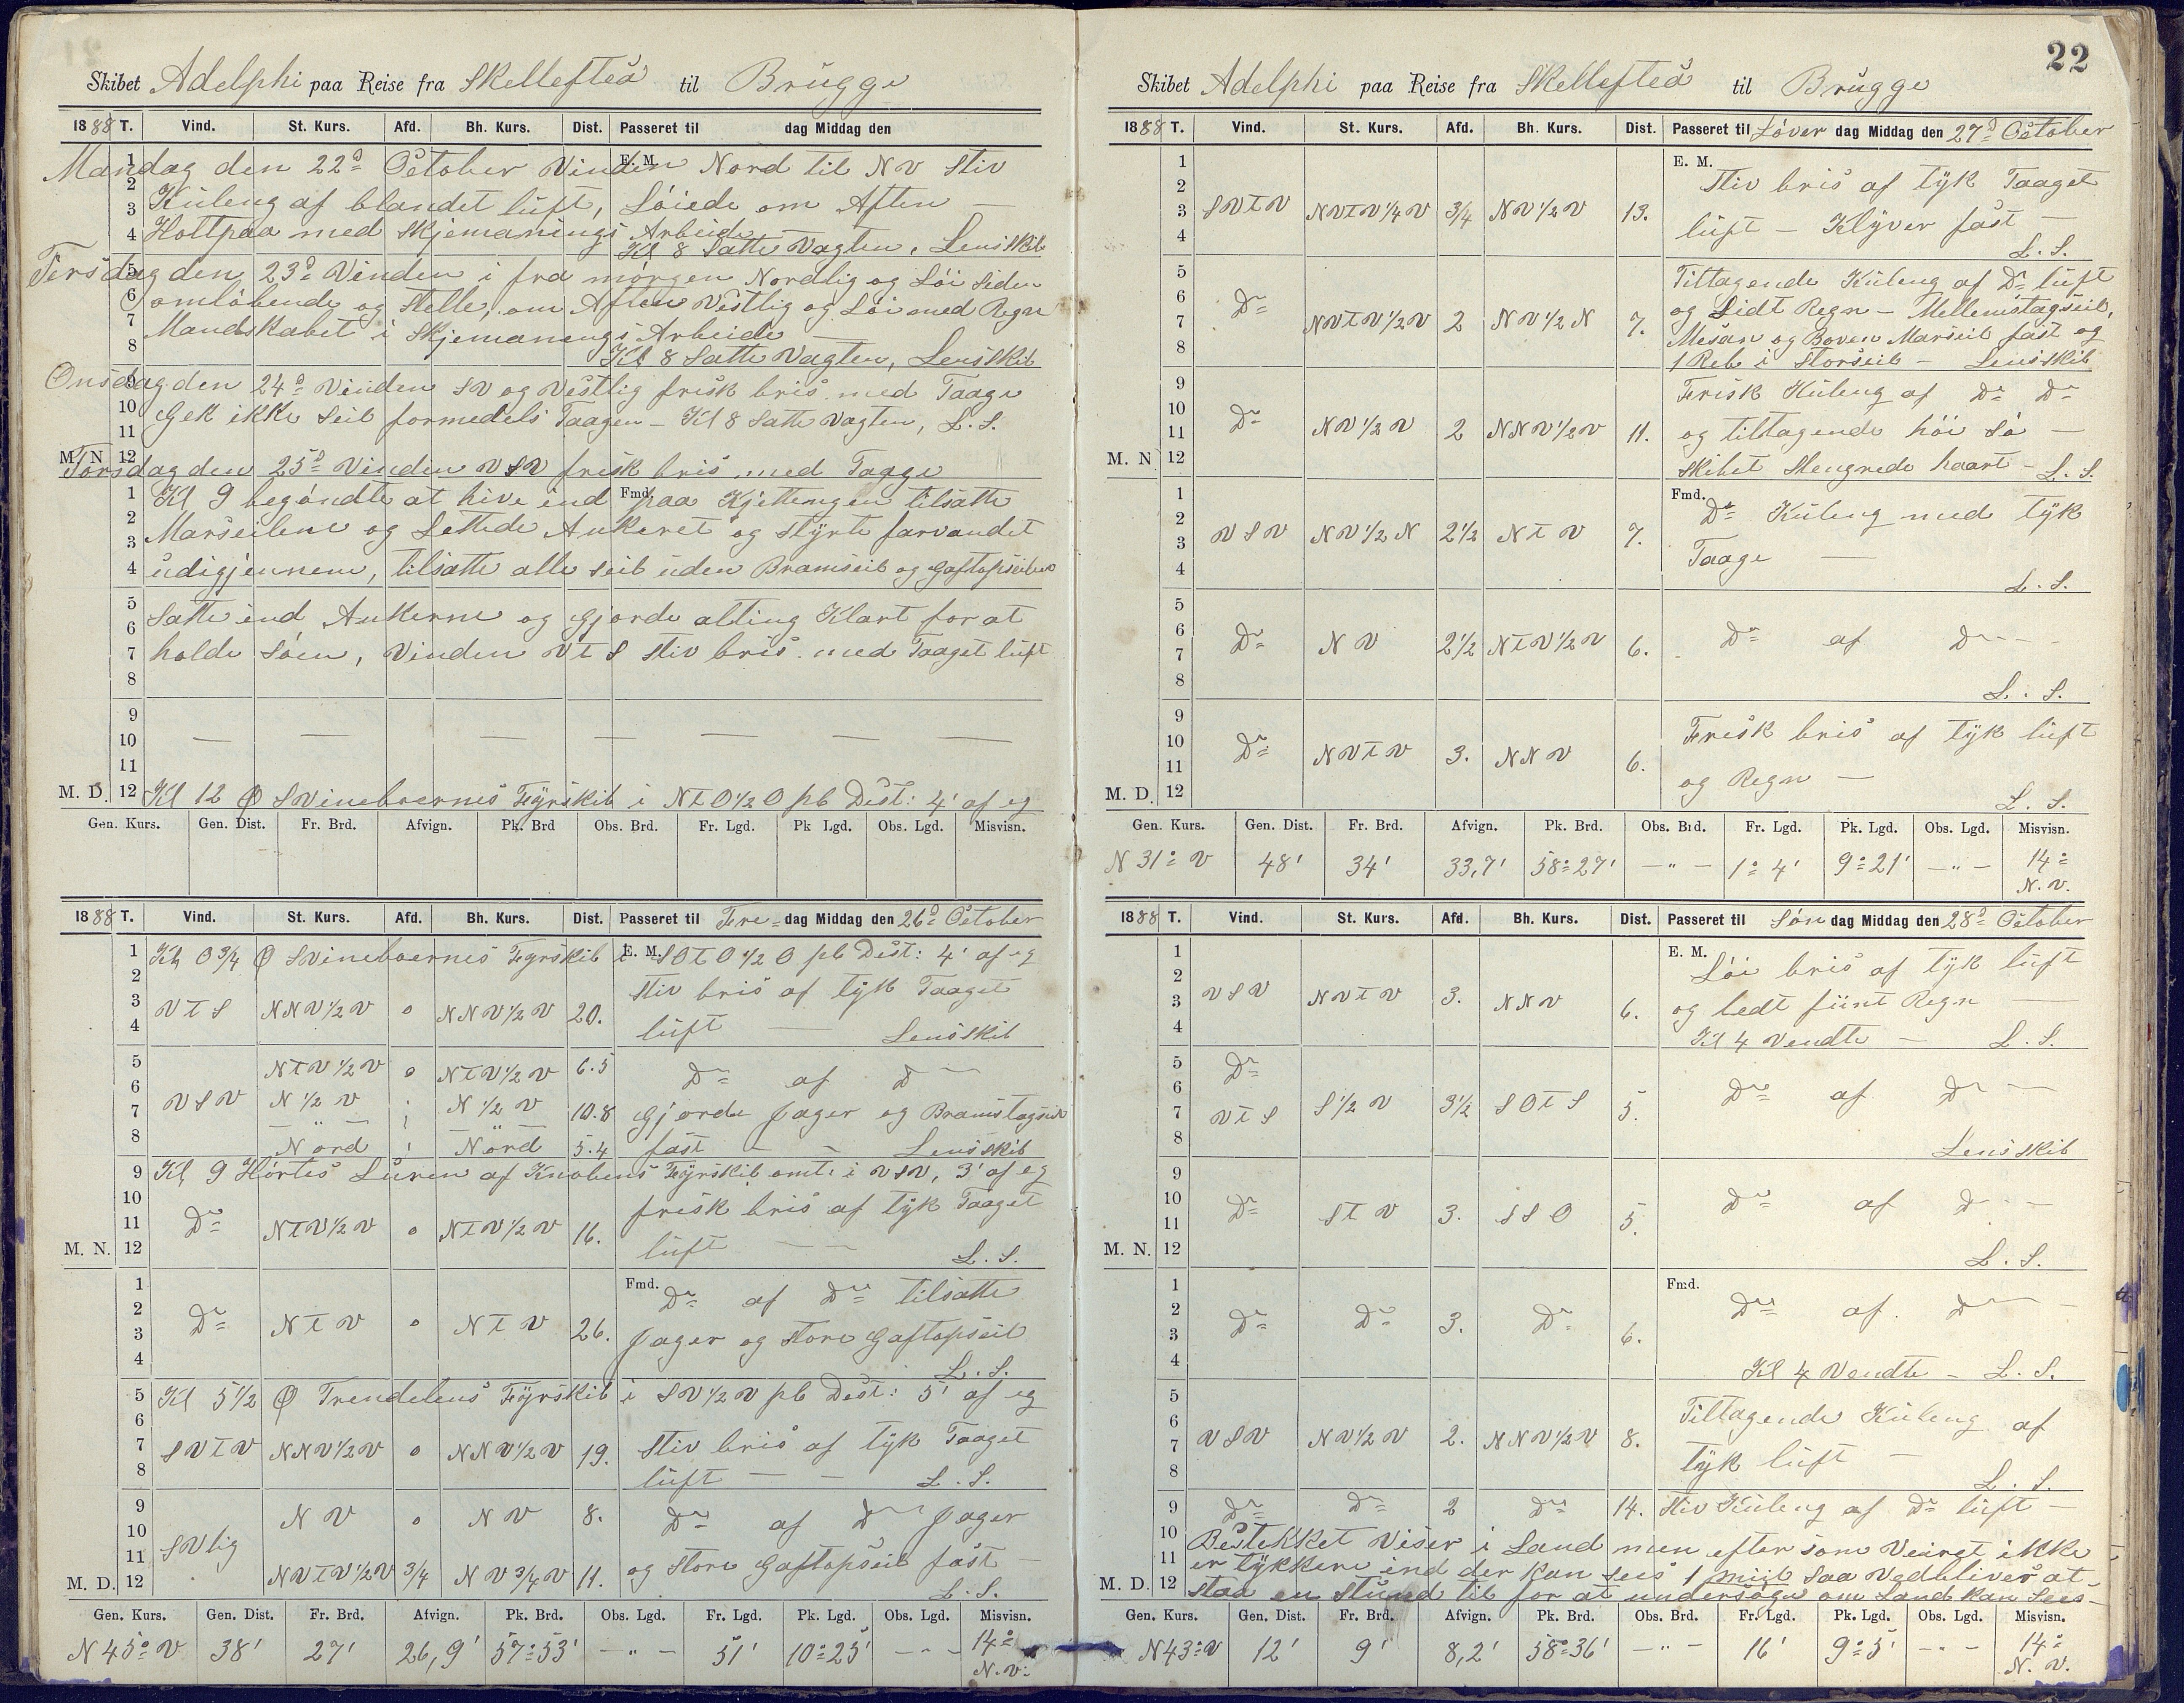 Skibet Adelphi paa Reise fra Skellefteå til Brügge
1888 T. Vind. St. Kurs. Afd. Bh. Kurs. Dist. Passeret til dag Middag den
Mandag den 22d October Vinden Nord til NV stiv
Kuleng af blandet luft, Löiede om Aften —
Holtpaa med Skjemanings Arbeide —
Kl 8 Satte Vagten, Lens Skib
Tirsdag den 23d Vinden i fra morgen Nordlig og Löi siden
omlöbende og stelle, om Aften Vestlig og Löi med Regn
Mandskabet i Skjemanings Arbeide —
Kl 8 Satte Vagten, Lensskib
Onsdag den 24d Vinden SV og Vestlig frisk bris med Taage
Gek ikke Seil formedels Taagen — Kl 8 Satte Vagten, L. S.
Torsdag den 25d Vinden VSV frisk bris med Taage
Kl 9 begöndte at hive ind paa Kjettengen tilsatte
Marseilene og Lettede Ankeret og Styrte farvandet
udigjennem, tilsatte alle seil uden Bramseil og Gaftopseilene
Satte ind Ankerne og gjorde alting Klart for at
holde Söen, Vinden VTS stiv bris med Taaget luft
Kl 12 Ø Svinebaernes Fyrskib i NTO½O pb Dist: 4' af eg
Gen. Kurs. Gen. Dist. Fr. Brd. Afvign. Pk. Brd Obs. Brd. Fr. Lgd. Pk Lgd. Obs. Lgd. Misvisn.
1888 T. Vind. St. Kurs. Afd. Bh. Kurs. Dist. Passeret til Fre- dag Middag den 26d October
Kl 0¾ Ø Svinebaernes Fyrskib i SOTO½O pb Dist: 4' af eg
E. M.
VTS NNV½V 0 NNV½V 20. Stiv bris af tyk Taaget
luft — Lensskib
NTV½V 0 NTV½V 6.5 Do af Do
VSV N½V N½V 10.8 Gjorde Jager og Bramstagseil
Nord Nord 5.4 fast — — Lensskib
Kl 9 Hörtes Luren af Knobens Fyrskib omt. i VSV, 3' af eg
Do NTV½V 0 NTV½V 16. frisk bris af tyk Taaget
luft — L. S.
M. N.
Fmd.
Do NTV 0 NTV 26. Do af Do tilsatte
Jager og store Gaftopseil
L. S.
Kl 5½ Ø Trendelens Fyrskib i SV½V pb Dist: 5' af eg
SVTV NNV½V 0 NNV½V 19. Stiv bris af tyk Taaget
luft — — L. S.
SVlig NV 0 NV 8. Do af Do Jager
NVTV½V 3/4 NV¾V 11. og store Gaftopseil fast —
M. D. L. S.
Gen. Kurs. Gen. Dist. Fr. Brd. Afvign. Pk. Brd. Obs. Lgd. Fr. Lgd. Pk. Lgd. Obs. Lgd. Misvisn.
N 45° V 38' 27' 26,9' 57° 53' — " — 51' 10° 25' — " — 14°
N. V.
22
Skibet Adelphi paa Reise fra Skellefteå til Brügge
1888 T. Vind. St. Kurs. Afd. Bh. Kurs. Dist. Passeret til Löver dag Middag den 27d October
E. M.
SVTV NVTV¼V 3/4 NV½V 13. Stiv bris af tyk Taaget
luft — Klyver fast —
L. S.
Do NVTV½V 2 NV½N 7. Tiltagende Kuleng af Do luft
og Lidt Regn — Mellemstagseil,
Mesan og Boven Marseil fast og
1 Reb i Storseil — Lensskib
Do NV½V 2 NNV½V 11. Frisk Kuleng af Do Do
og tiltagende höi Sö —
M. N 12 Skibet Slengrede haart — L. S.
Fmd.
VSV NV½N 2½ NTV 7. Do Kuleng med tyk
Taage —
L. S.
Do NV 2½ NTV½V 6. Do af Do — —
L. S.
Do NVTV 3. NNV 6. Frisk bris af tyk luft
og Regn —
M. D. 12 L. S.
Gen. Kurs. Gen. Dist. Fr. Brd. Afvign. Pk. Brd. Obs. Brd. Fr. Lgd. Pk. Lgd. Obs. Lgd. Misvisn.
N 31° V 48' 34' 33,7' 58° 27' — " — 1° 4' 9° 21' — " — 14°
N. V.
1888 T. Vind. St. Kurs. Afd. Bh. Kurs. Dist. Passeret til Sön dag Middag den 28d October
E. M.
VSV NVTV 3. NNV 6. Löi bris af tyk luft
og ledt fiint Regn —
Kl 4 Vendte — L. S.
Do
VTS S½V 3½ SOTS 5. Do af Do —
Lensskib
Do STV 3. SSO 5. Do af Do —
M. N. 12 L. S.
Fmd.
Do Do 3. Do 6. Do af Do —
Kl 4 Vendte — L. S.
VSV NV½V 2. NNV½V 8. Tiltagende Kuleng af
tyk luft —
L. S.
Do Do 2 Do 14. Stiv Kuleng af Do luft —
Bestekket Viser i Land men eftersom Veiret ikke
er tykkere end der kan sees 1 miil saa vedbliver at
M. D. 12 staa en stund til for at undersöge om Land kan Sees —
Gen. Kurs. Gen. Dist. Fr. Brd. Afvign. Pk. Brd. Obs. Brd. Fr. Lgd. Pk. Lgd. Obs. Lgd. Misvisn.
N43°V 12' 9' 8,2' 58° 36' — " — 16' 9° 5' — " — 14°
N. V.